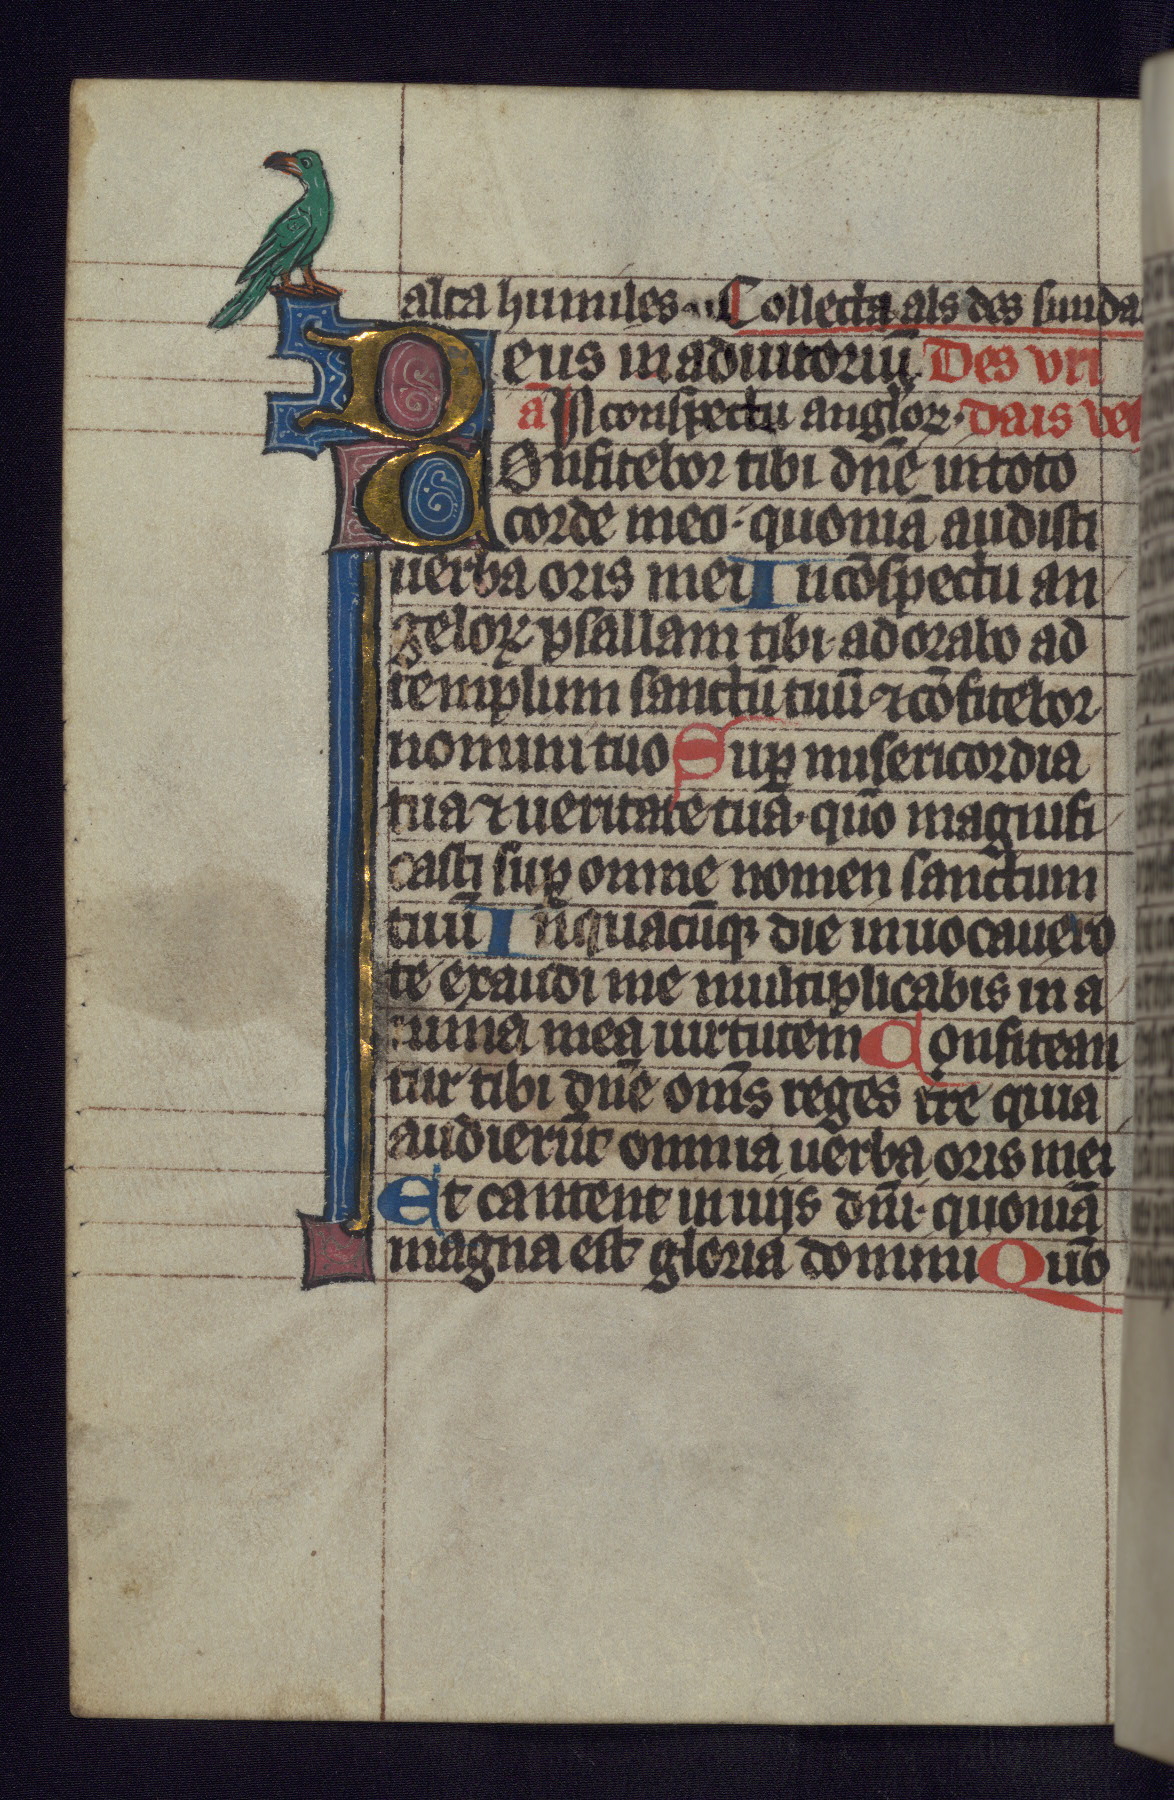 alta humiles. Collecta als des sunda
Deus in adiutoriū. Des vri
a In conspectu anglor. dais ves
Confitebor tibi dn̄e in toto
corde meo: quoniā audisti
uerba oris mei In cōspectu an
geloꝝ psallam tibi. adorabo ad
templum sanctū tuū ⁊ cōfitebor
nomini tuo Suꝑ misericordia
tua ⁊ ueritate tua. quō magnifi
casti suꝑ omne nomen sanctum
tuū In quacūqꝫ die inuocauero
te exaudi me multiplicabis in a
nima mea uirtutem Confitean
tur tibi dn̄e om̄s reges tr̄e quia
audierūt omnia uerba oris mei
Et cantent in uijs dn̄i. quoniā
magna est gloria domini Quō